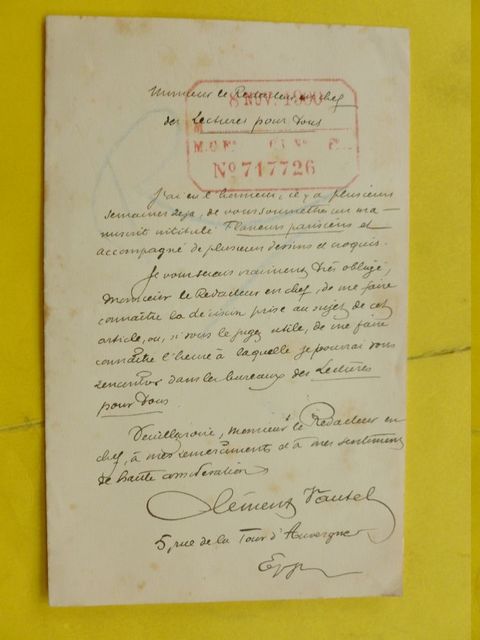 Monsieur le Rédacteur en chef
8 NOV. 1900
des Lectures pour Tous
M.C Nº C1 Nº F
Nº 717726
J'ai eu l'honneur, il y a plusieurs
semaines déjà, de vous soumettre un ma-
nuscrit intitulé Flâneurs parisiens et
accompagné de plusieurs dessins et croquis.
Je vous serais vraiment très obligé,
Monsieur le Rédacteur en chef, de me faire
connaître la décision prise au sujet de cet
article, ou, si vous le jugez utile, de me faire
connaître l'heure à laquelle je pourrai vous
rencontrer dans les bureaux des Lectures
pour Tous
Veuillez croire, Monsieur le Rédacteur en
chef, à mes remerciments et à mes sentiments
de haute considération
Clément Vautel
5, rue de la Tour d'Auvergne